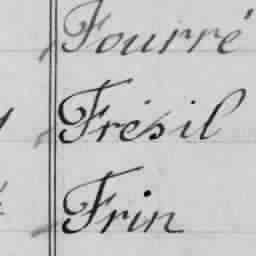 Fourré
Frésil
Frin